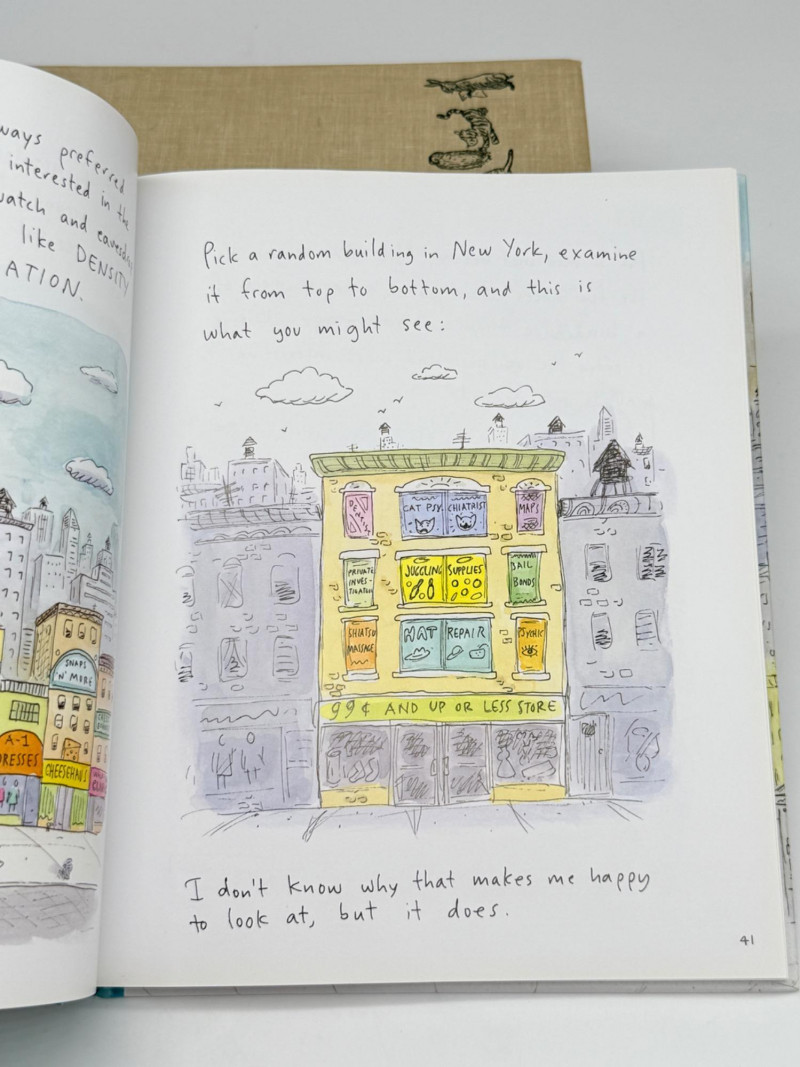 ways preferred
interested in the
watch and
like DENSITY
ATION.
SNAPS
'N' MORE
A-1
DRESSES
CHEESERAMA
Pick a random building in New York, examine
it from top to bottom, and this is
what you might see:
DENTIST
CAT PSY CHIATRIST
MAPS
PRIVATE
INVES-
TIGATOR
JUGGLING SUPPLIES
BAIL
BONDS
SHIATSU
MASSAGE
HAT REPAIR
PSYCHIC
99¢ AND UP OR LESS STORE
I don't know why that makes me happy
to look at, but it does.
41